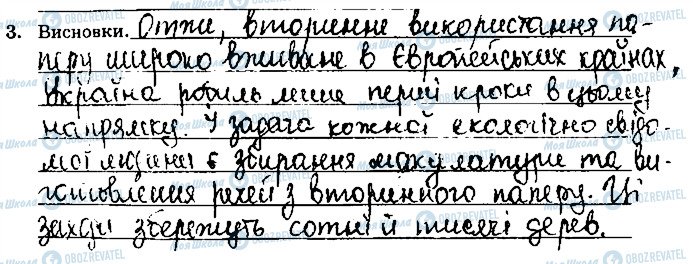 3. Висновки. Отже, вторинне використання па-
перу широко вживане в Європейських країнах,
Україна робить лише перші кроки в цьому
напрямку. І задача кожної екологічно свідо-
мої людини є збирання макулатури та ви-
готовлення речей з вторинного паперу. Ці
заходи збережуть сотні й тисячі дерев.